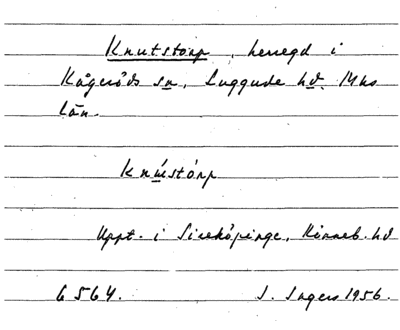 Knutstorp, herregd i
Kågeröds sn, Luggude hd. Mhs
län.
Knústórp
Uppt. i Sireköpinge, Rönneb. hd
6564. I. Ingers 1956.